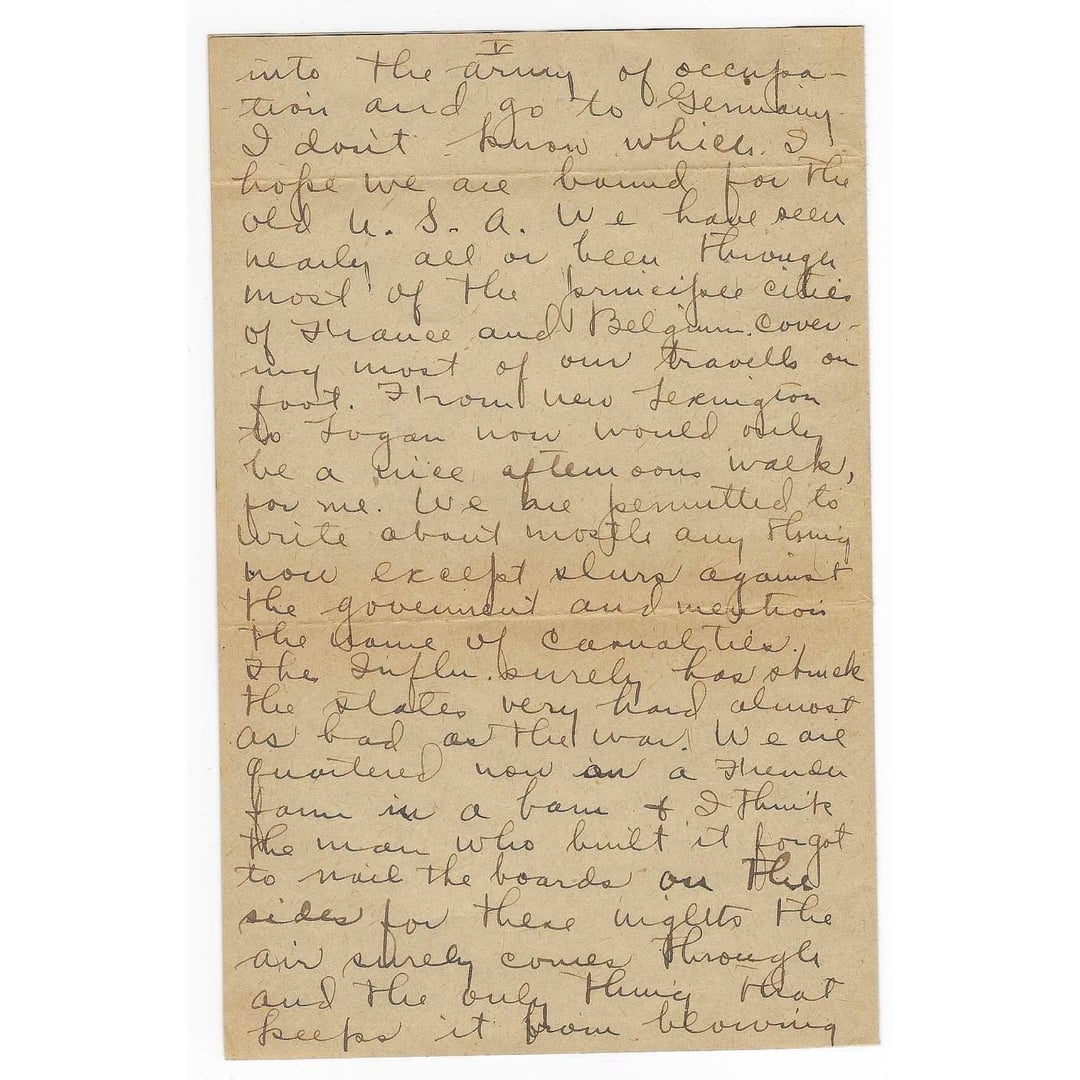 V
into the army of occupa-
tion and go to Germany.
I don't know which. I
hope we are bound for the
old U. S. A. We have seen
nearly all or been through
most of the principle cities
of France and Belgium. Cover-
ing most of our travells on
foot. From New Lexington
to Logan now would only
be a nice afternoons walk,
for me. We are permitted to
write about mostly any thing
now except slurs against
the goverment and mention
the name of Casualties.
The Influ. surely has struck
the states very hard almost
as bad as the war. We are
quartered now on a French
farm in a barn & I think
the man who built it forgot
to nail the boards on the
sides for these nights the
air surely comes through
and the only thing that
keeps it from blowing